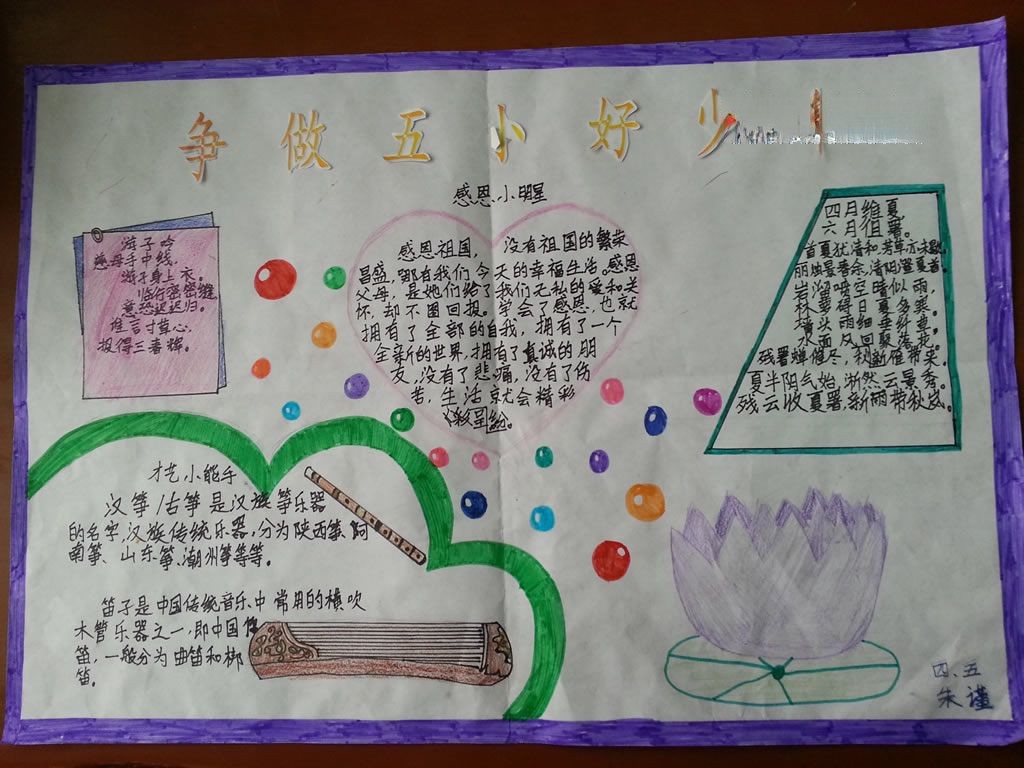 争做五小好少
感恩小明星
游子吟
慈母手中线，
游子身上衣。
临行密密缝
意恐迟迟归。
谁言寸草心，
报得三春晖。
感恩祖国，没有祖国的繁荣
昌盛，哪有我们今天的幸福生活。感恩
父母，是她们给了我们无私的爱和关
怀，却不图回报。学会了感恩，也就
拥有了全部的自我，拥有了一个
全新的世界，拥有了真诚的朋
友，没有了悲痛，没有了伤
苦，生活京就会精彩
缤纷。
四月维夏，
六月徂暑。
首夏犹清和，芳草亦未歇。
岩溜喷空晴似雨，
林萝碍日夏多寒。
墙头雨细垂纤草，
水面风回聚落花。
残暑蝉催尽，秋新雁带来。
夏半阳气始，淅然云景秀。
残云收夏暑，新雨带秋岚。
才艺小能手
汉筝/古筝是汉族筝乐器
的名字，汉族传统乐器，分为陕西筝、河
南筝、山东筝、潮州筝等等。
笛子是中国传统音乐中常用的横吹
木管乐器之一，即中国
笛，一般分为曲笛和梆
笛。
四、五
朱谨